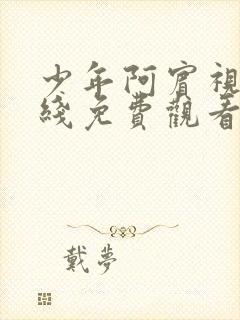 少年阿賓視
綫免費觀看
戴夢